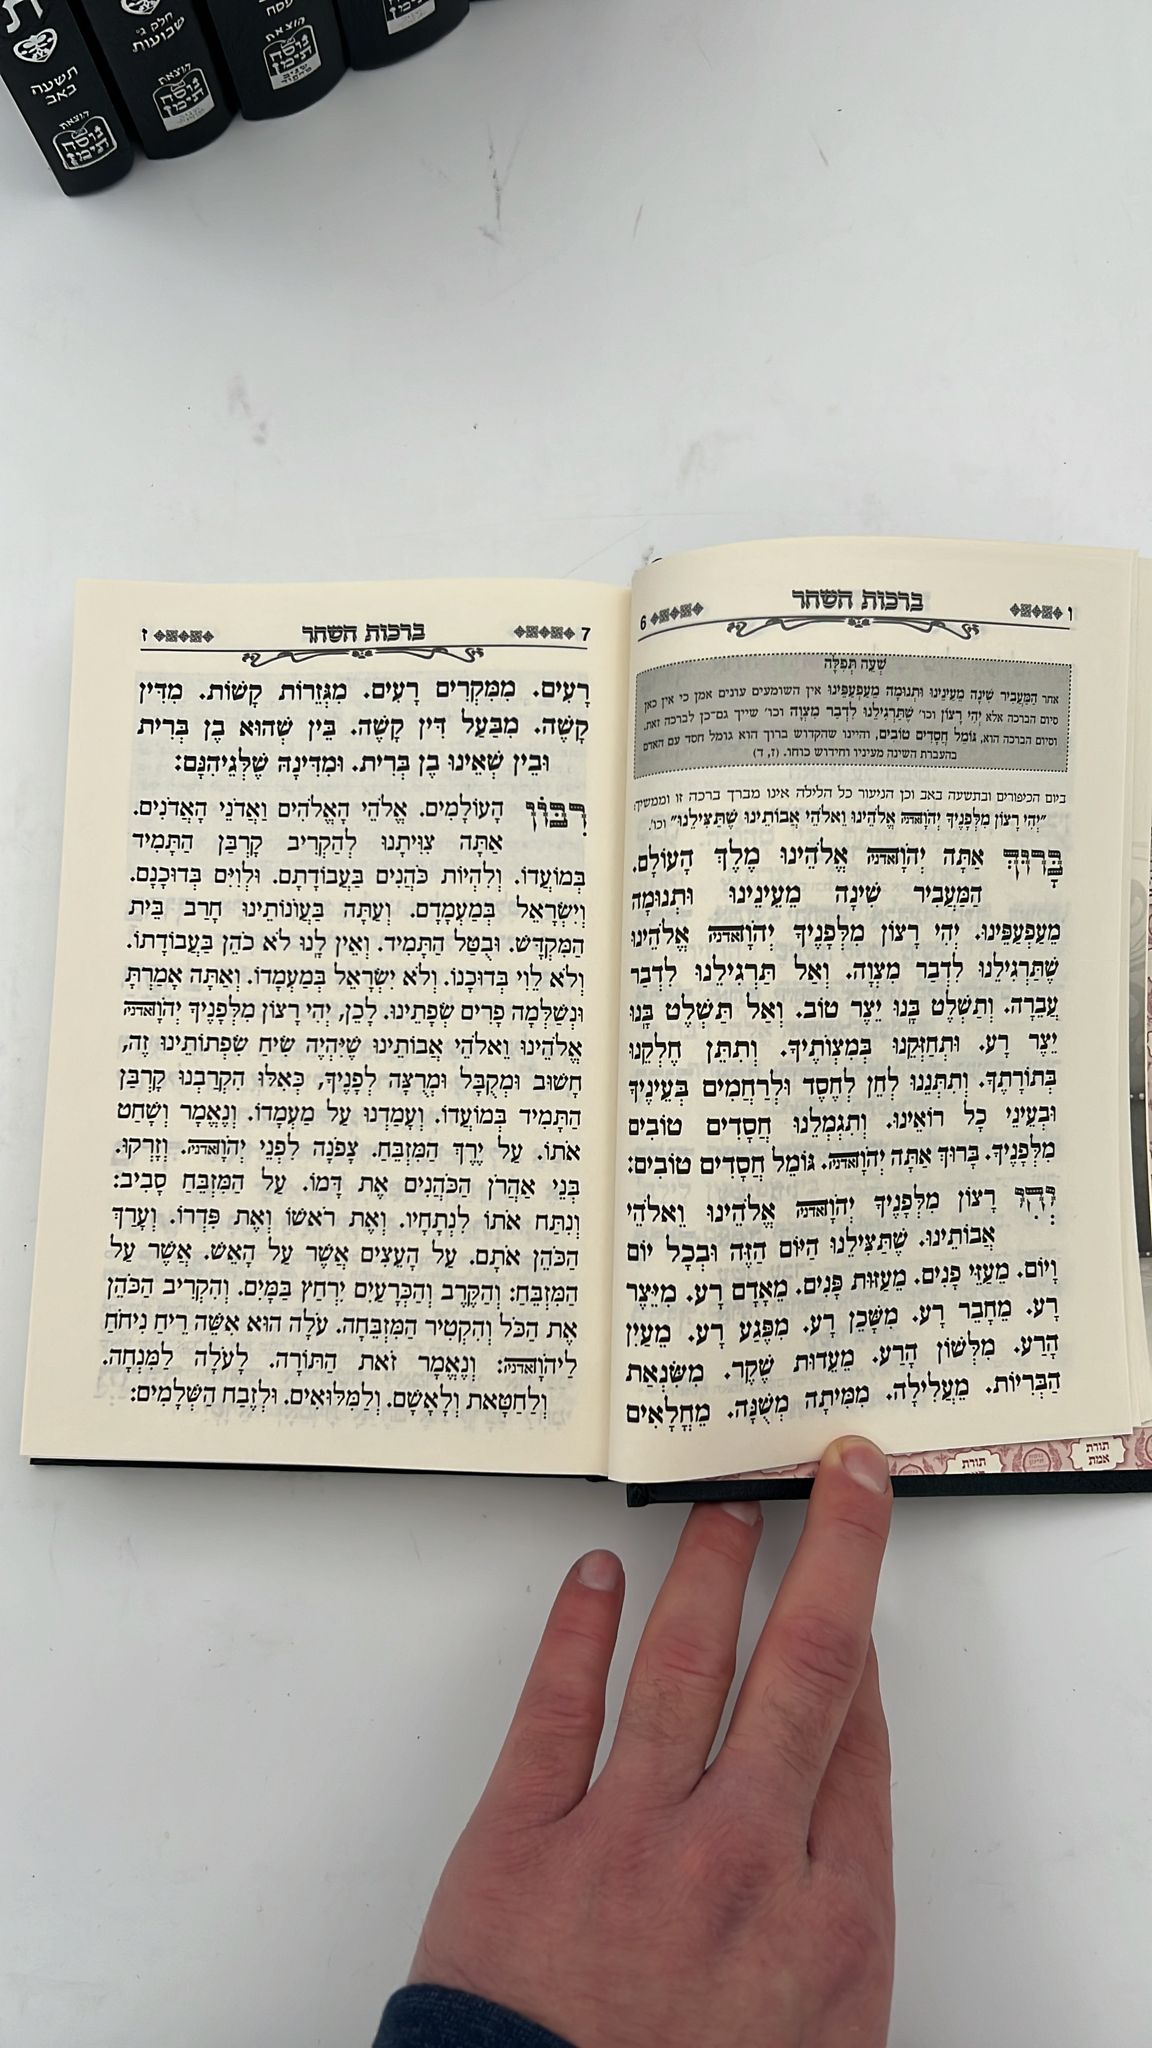 תשעה
באב
הוצאת
נוסח
תימן
חלק ג׳
שבועות
הוצאת
נוסח
תימן
פסח
הוצאת
נוסח
תימן
ו
ברכות השחר
6
שְׁעַת תְּפִלָּה
אחר הַמַּעֲבִיר שֵׁינָה מֵעֵינֵינוּ וּתְנוּמָה מֵעַפְעַפֵּינוּ אין השומעים עונים אמן כי אין כאן
סיום הברכה אלא יְהִי רָצוֹן וכו׳ שֶׁתַּרְגִּילֵנוּ לִדְבַר מִצְוָה וכו׳ שייך גם-כן לברכה זאת.
וסיום הברכה הוא, גּוֹמֵל חֲסָדִים טוֹבִים, והיינו שהקדוש ברוך הוא גומל חסד עם האדם
בהעברת השינה מעיניו וחידוש כוחו. (ז, ד)
ביום הכיפורים ובתשעה באב וכן הניעור כל הלילה אינו מברך ברכה זו וממשיך:
"יְהִי רָצוֹן מִלְּפָנֶיךָ יְהֹוָה אדניה אֱלֹהֵינוּ וֵאלֹהֵי אֲבוֹתֵינוּ שֶׁתַּצִּילֵנוּ" וכו׳.
בָּרוּךְ אַתָּה יְהֹוָה אדניה אֱלֹהֵינוּ מֶלֶךְ הָעוֹלָם.
הַמַּעֲבִיר שֵׁינָה מֵעֵינֵינוּ וּתְנוּמָה
מֵעַפְעַפֵּינוּ. יְהִי רָצוֹן מִלְּפָנֶיךָ יְהֹוָה אדניה אֱלֹהֵינוּ
שֶׁתַּרְגִּילֵנוּ לִדְבַר מִצְוָה. וְאַל תַּרְגִּילֵנוּ לִדְבַר
עֲבֵרָה. וְתַשְׁלֵט בָּנוּ יֵצֶר טוֹב. וְאַל תַּשְׁלֵט בָּנוּ
יֵצֶר רָע. וּתְחַזְּקֵנוּ בְּמִצְוֹתֶיךָ. וְתִתֵּן חֶלְקֵנוּ
בְּתוֹרָתֶךָ. וְתִתְּנֵנוּ לְחֵן לְחֶסֶד וּלְרַחֲמִים בְּעֵינֶיךָ
וּבְעֵינֵי כָל רוֹאֵינוּ. וְתִגְמְלֵנוּ חֲסָדִים טוֹבִים
מִלְּפָנֶיךָ. בָּרוּךְ אַתָּה יְהֹוָה אדניה. גּוֹמֵל חֲסָדִים טוֹבִים:
יְהִי רָצוֹן מִלְּפָנֶיךָ יְהֹוָה אדניה אֱלֹהֵינוּ וֵאלֹהֵי
אֲבוֹתֵינוּ. שֶׁתַּצִּילֵנוּ הַיּוֹם הַזֶּה וּבְכָל יוֹם
וָיוֹם. מֵעַזֵּי פָנִים. מֵעַזּוּת פָּנִים. מֵאָדָם רָע. מִיֵּצֶר
רָע. מֵחָבֵר רָע. מִשָּׁכֵן רָע. מִפֶּגַע רָע. מֵעַיִן
הָרַע. מִלְּשׁוֹן הָרַע. מֵעֵדוּת שֶׁקֶר. מִשִּׂנְאַת
הַבְּרִיּוֹת. מֵעֲלִילָה. מִמִּיתָה מְשֻׁנָּה. מֵחֳלָאִים
7
ברכות השחר
ז
רָעִים. מִמִּקְרִים רָעִים. מִגְּזֵרוֹת קָשׁוֹת. מִדִּין
קָשֶׁה. מִבַּעַל דִּין קָשֶׁה. בֵּין שֶׁהוּא בֶן בְּרִית
וּבֵין שֶׁאֵינוֹ בֶן בְּרִית. וּמִדִּינָהּ שֶׁלְּגֵיהִנָּם:
רִבּוֹן הָעוֹלָמִים. אֱלֹהֵי הָאֱלֹהִים וַאֲדֹנֵי הָאֲדֹנִים.
אַתָּה צִוִּיתָנוּ לְהַקְרִיב קָרְבַּן הַתָּמִיד
בְּמוֹעֲדוֹ. וְלִהְיוֹת כֹּהֲנִים בַּעֲבוֹדָתָם. וּלְוִיִּם בְּדוּכָנָם.
וְיִשְׂרָאֵל בְּמַעֲמָדָם. וְעַתָּה בַּעֲוֹנוֹתֵינוּ חָרַב בֵּית
הַמִּקְדָּשׁ. וּבֻטַּל הַתָּמִיד. וְאֵין לָנוּ לֹא כֹהֵן בַּעֲבוֹדָתוֹ.
וְלֹא לֵוִי בְּדוּכָנוֹ. וְלֹא יִשְׂרָאֵל בְּמַעֲמָדוֹ. וְאַתָּה אָמַרְתָּ
וּנְשַׁלְּמָה פָרִים שְׂפָתֵינוּ. לָכֵן, יְהִי רָצוֹן מִלְּפָנֶיךָ יְהֹוָה אדניה
אֱלֹהֵינוּ וֵאלֹהֵי אֲבוֹתֵינוּ שֶׁיִּהְיֶה שִׂיחַ שִׂפְתוֹתֵינוּ זֶה,
חָשׁוּב וּמְקֻבָּל וּמְרֻצֶּה לְפָנֶיךָ, כְּאִלּוּ הִקְרַבְנוּ קָרְבַּן
הַתָּמִיד בְּמוֹעֲדוֹ. וְעָמַדְנוּ עַל מַעֲמָדוֹ. וְנֶאֱמַר וְשָׁחַט
אֹתוֹ. עַל יֶרֶךְ הַמִּזְבֵּחַ. צָפֹנָה לִפְנֵי יְהֹוָה אדניה. וְזָרְקוּ.
בְּנֵי אַהֲרֹן הַכֹּהֲנִים אֶת דָּמוֹ. עַל הַמִּזְבֵּחַ סָבִיב:
וְנִתַּח אֹתוֹ לִנְתָחָיו. וְאֶת רֹאשׁוֹ וְאֶת פִּדְרוֹ. וְעָרַךְ
הַכֹּהֵן אֹתָם. עַל הָעֵצִים אֲשֶׁר עַל הָאֵשׁ. אֲשֶׁר עַל
הַמִּזְבֵּחַ: וְהַקֶּרֶב וְהַכְּרָעַיִם יִרְחַץ בַּמָּיִם. וְהִקְרִיב הַכֹּהֵן
אֶת הַכֹּל וְהִקְטִיר הַמִּזְבֵּחָה. עֹלָה הוּא אִשֵּׁה רֵיחַ נִיחֹחַ
לַיהֹוָה אדניה: וְנֶאֱמַר זֹאת הַתּוֹרָה. לָעֹלָה לַמִּנְחָה.
וְלַחַטָּאת וְלָאָשָׁם. וְלַמִּלּוּאִים. וּלְזֶבַח הַשְּׁלָמִים:
תורת
אמת
תורת